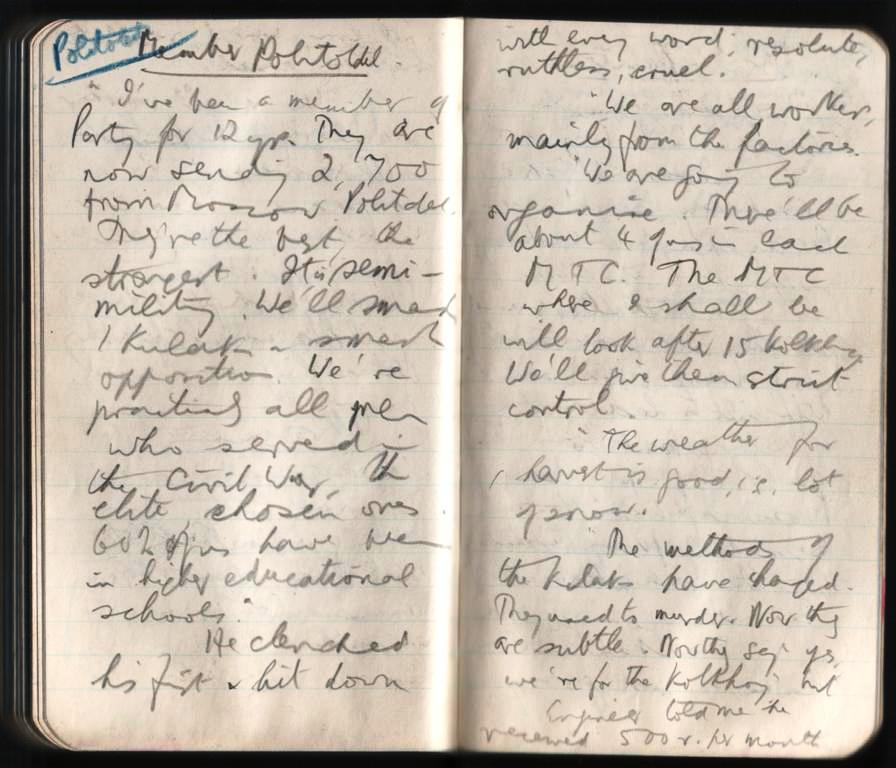 Politotdel
Member Politotdel.
"I've been a member of
Party for 12 yrs. They are
now sending 2,700
from Moscow Politdel.
They're the best, the
strongest. It is semi-
military. We'll smash
/ Kulak & smash
opposition. We're
practically all men
who served in
the Civil War, the
elite chosen ones
60% of us have been
in higher educational
schools."
He clenched
his fist & hit down
with every word; resolute,
ruthless, cruel.
"We are all workers,
mainly from the factories.
"We are going to
organise. There'll be
about 4 of us in each
MTC. The MTC
where I shall be
will look after 15 Kolkhoz
We'll give them strict
control.
"The weather for
/ harvest is good, i.e. lot
of snow.
"The methods of
the kulaks have changed.
They used to murder. Now they
are subtle. Now they say yes,
we're for the Kolkhoz, but
Engineer told me he
received 500 r. per month